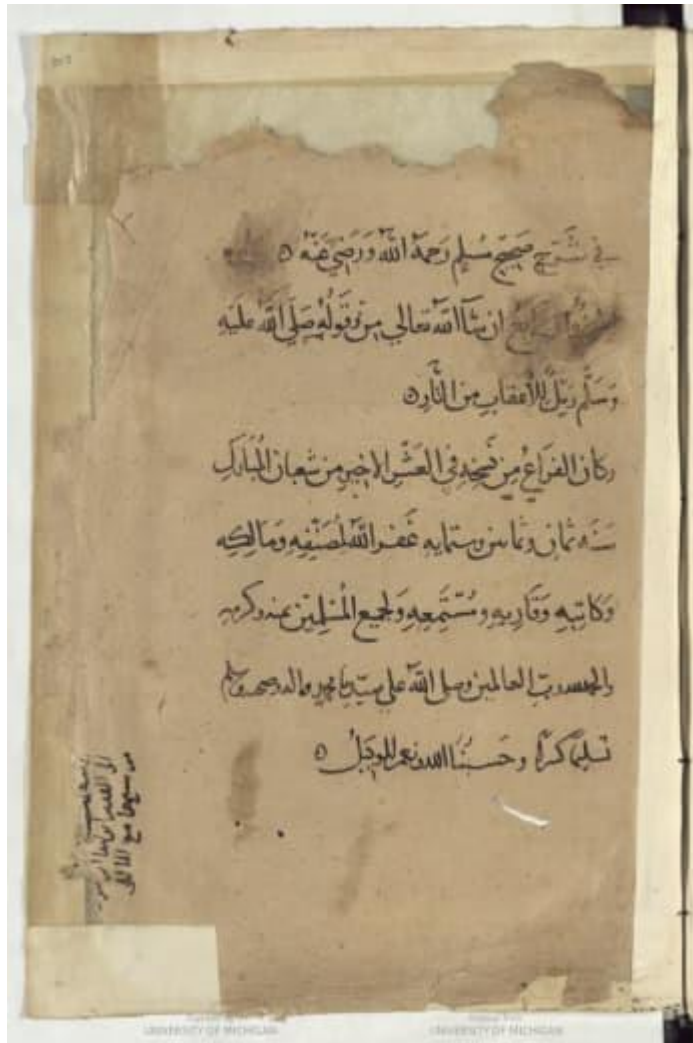 في شرح صحيح مسلم رحمه الله ورضي عنه ه
الرابع ان شا الله تعالي من قوله صلى الله عليه
وسلم ويل للأعقاب من النار ه
وكان الفراغ من نسخه في العشر الاخير من شعبان المبارك
سنه ثمان وثمانين وستمايه غفر الله لمصنفه ومالكه
وكاتبه وقاريه ومستمعه ولجميع المسلمين بمنه وكرمه
والحمد لله رب العالمين وصلى الله على سيدنا محمد واله وصحبه وسلم
تسليما كثيرا وحسبنا الله ونعم الوكيل ه
UNIVERSITY OF MICHIGAN
UNIVERSITY OF MICHIGAN